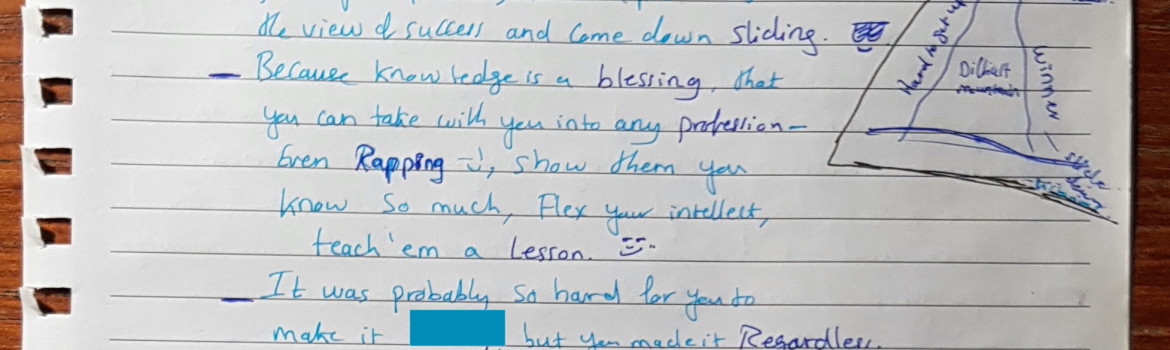 the view of success and come down sliding.
— Because knowledge is a blessing, that
you can take with you into any profession —
Even Rapping :), show them you
know so much, Flex your intellect,
teach 'em a Lesson.
— It was probably so hard for you to
make it but you made it Regardless.
Hard to
mountain
winner
slide